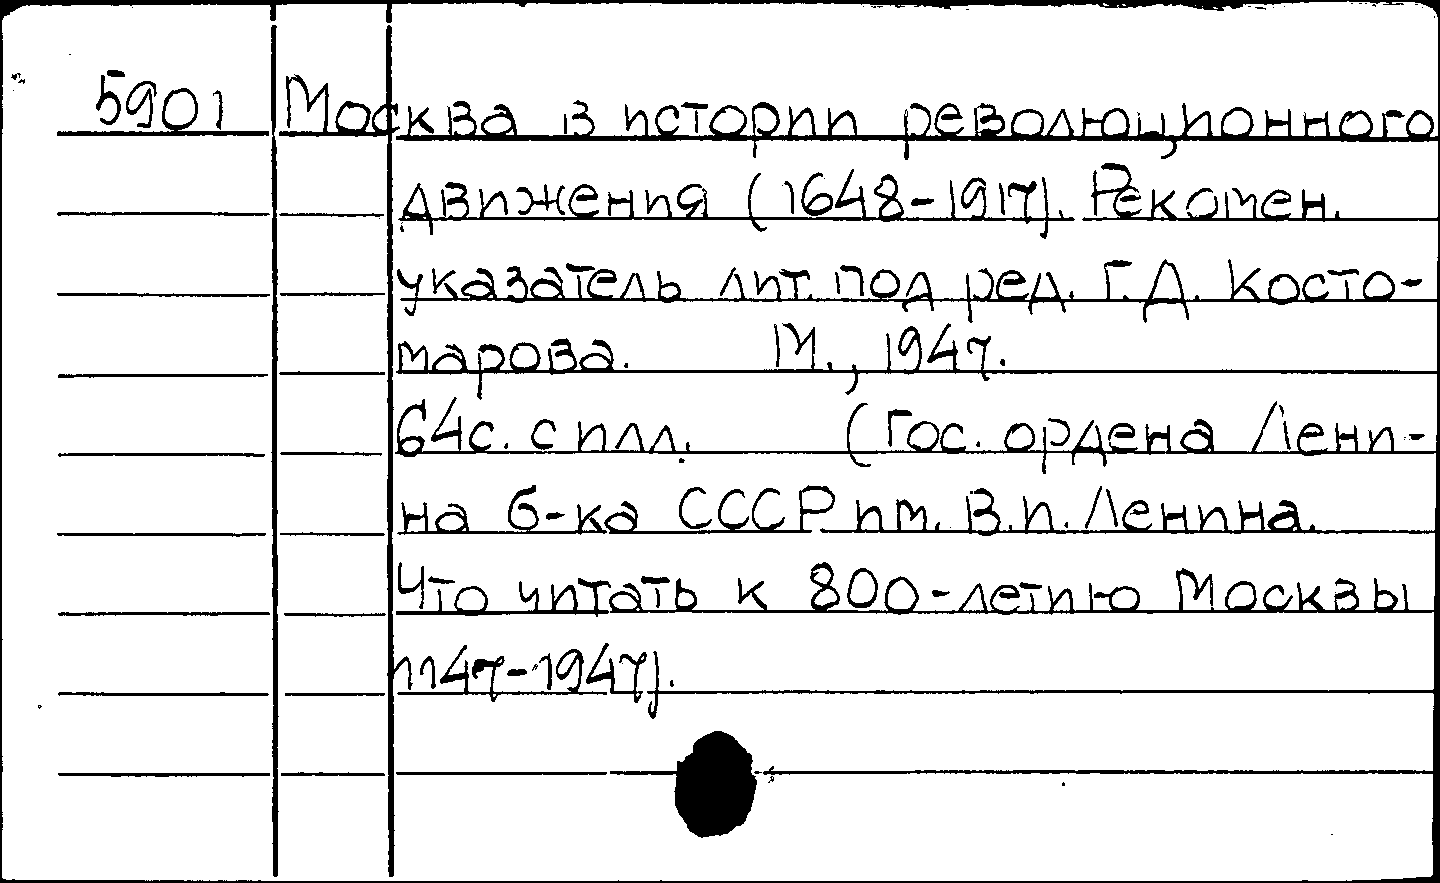 5901 Москва в истории революционного
движения (1648-1917). Рекомен.
указатель лит. под ред. Г.Д. Косто-
марова. М., 1947.
64с. с илл. (Гос. ордена Лени-
на б-ка СССР им. В.И. Ленина.
Что читать к 800-летию Москвы
(1147-1947).